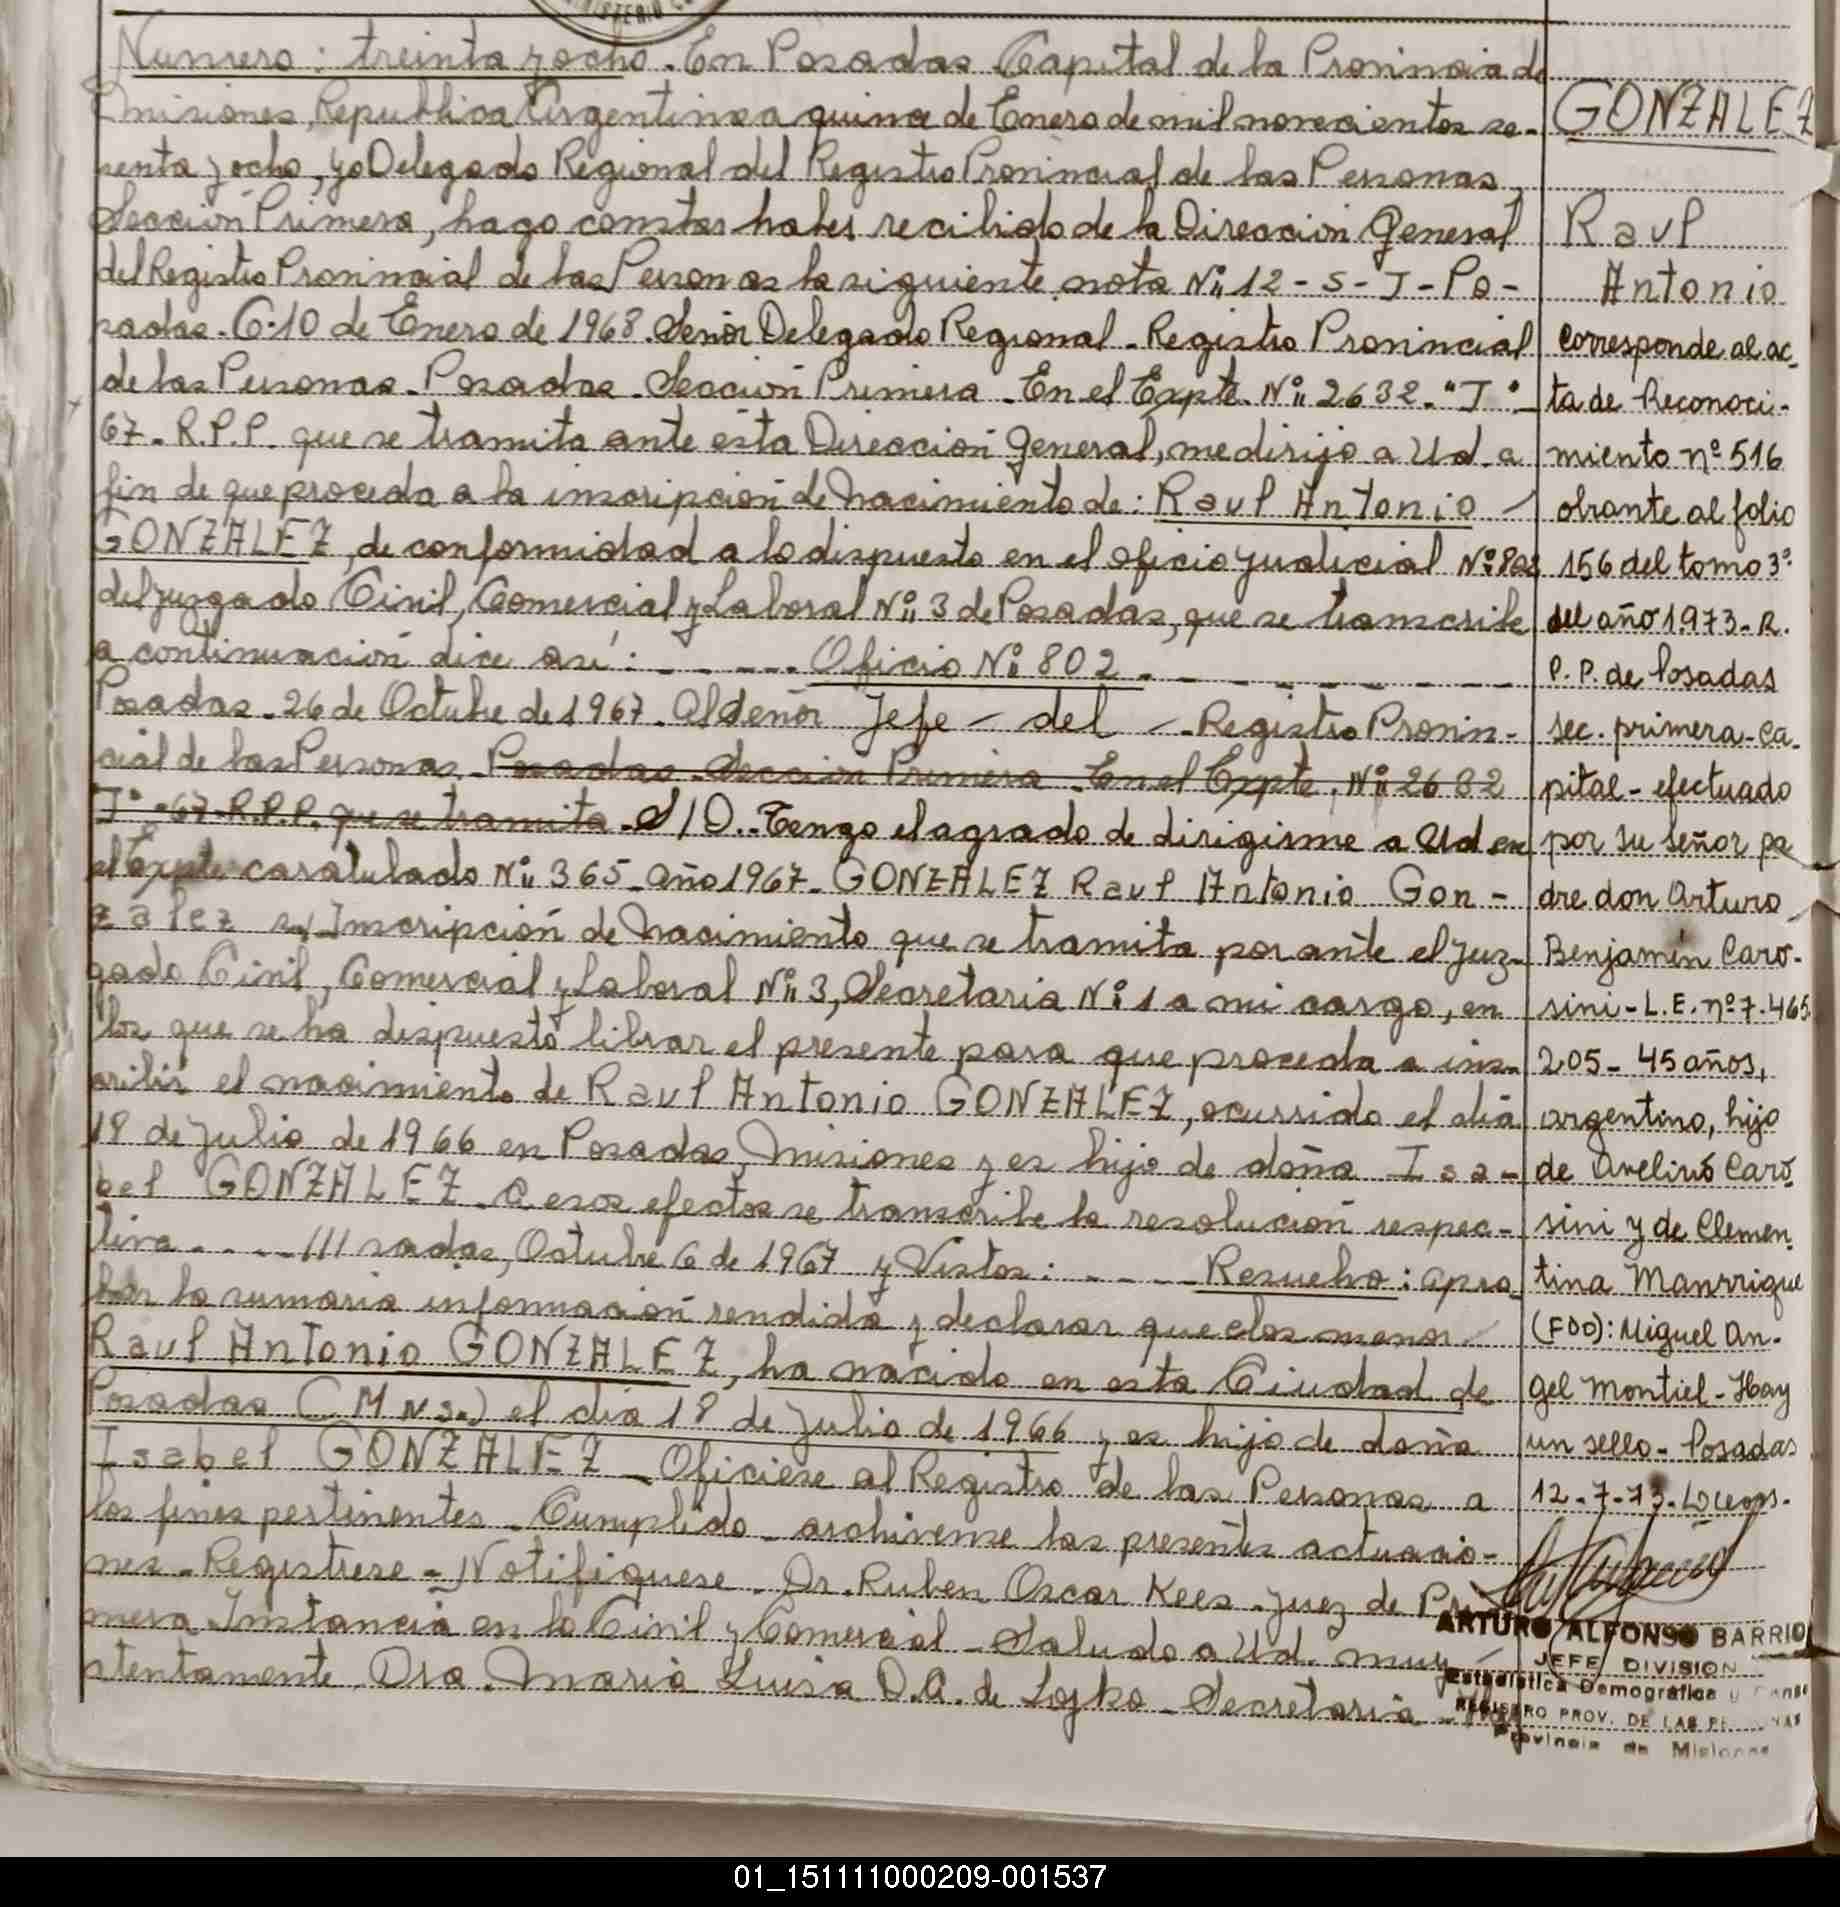 MINISTERIO
Numero: treinta y ocho. En Posadas Capital de la Provincia de
Misiones, Republica Argentina a quince de Enero de mil novecientos se-
senta y ocho, yo Delegado Regional del Registro Provincial de las Personas,
Sección Primera, hago constar haber recibido de la Dirección General
del Registro Provincial de las Personas la siguiente nota Nº 12 - S - J - Po-
sadas. 6.10 de Enero de 1968. Señor Delegado Regional - Registro Provincial
de las Personas - Posadas - Sección Primera - En el Expte. Nº 2632 - "J" -
67 - R.P.P. que se tramita ante ésta Dirección General, me dirijo a Ud. a
fin de que proceda a la inscripción de nacimiento de: Raul Antonio
GONZALEZ, de conformidad a lo dispuesto en el oficio judicial Nº 802
del Juzgado Civil, Comercial y Laboral Nº 3 de Posadas, que se transcribe
a continuación dice así: - - - - - Oficio Nº 802 - - - - - - - -
Posadas - 26 de Octubre de 1967 - Al Señor Jefe - del - Registro Provin-
cial de las Personas - Posadas - Sección Primera - En el Expte. Nº 2632
J" - 67 - R.P.P. que se tramita - S/D.- Tengo el agrado de dirigirme a Ud en
el Expte caratulado Nº 365 - año 1967 - GONZALEZ Raul Antonio Gon-
zalez s/ Inscripción de Nacimiento que se tramita por ante el Juz-
gado Civil, Comercial y Laboral Nº 3, Secretaria Nº 1 a mi cargo, en
los que se ha dispuesto librar el presente para que proceda a ins-
cribir el nacimiento de Raul Antonio GONZALEZ, ocurrido el día
18 de Julio de 1966 en Posadas, Misiones y es hijo de doña Isa-
bel GONZALEZ - A esos efectos se transcribe la resolución respec-
tiva - - - - /// sadas, Octubre 6 de 1967 y Vistos: - - - - Resuelvo: apro-
bar la sumaria información rendida y declarar que el menor
Raul Antonio GONZALEZ, ha nacido en esta Ciudad de
Posadas (Mns.) el día 18 de Julio de 1966 y es hijo de doña
Isabel GONZALEZ - Oficiese al Registro de las Personas a
los fines pertinentes - Cumplido - archivense las presentes actuacio-
nes - Registrese - Notifiquese - Dr. Ruben Oscar Kees - Juez de Pri
mera Instancia en lo Civil y Comercial - Saludo a Ud. muy
atentamente. Dra. Maria Luisa D.A. de Lojko - Secretaria -
GONZALEZ
Raul
Antonio
Corresponde al ac-
ta de Reconoci-
miento nº 516
obrante al folio
156 del tomo 3º
del año 1973 - R.
P. P. de Posadas
sec. primera - ca-
pital - efectuado
por su señor pa
dre don Arturo
Benjamín Caro-
sini - L.E. nº 7.465
205 - 45 años,
argentino, hijo
de Avelino Caro
sini y de Clemen-
tina Manrrique
(FDO): Miguel An-
gel Montiel - Hay
un sello - Posadas
12 - 7 - 73 -
ARTURO ALFONSO BARRIO
JEFE DIVISION
Estadistica Demografica y
REGISTRO PROV. DE LAS PERSONAS
Provincia de Misiones
01_151111000209-001537